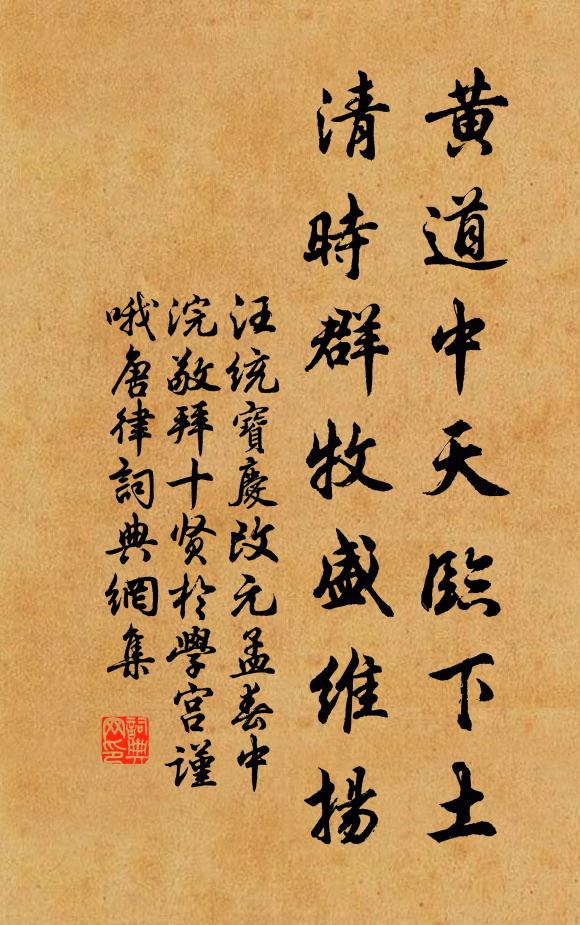 黄道中天臨下土
清時群牧盛維揚
汪统寶慶改元孟春中
浣敬拜十贤於學宫谨
哦唐律詞典網集
詞典
网印